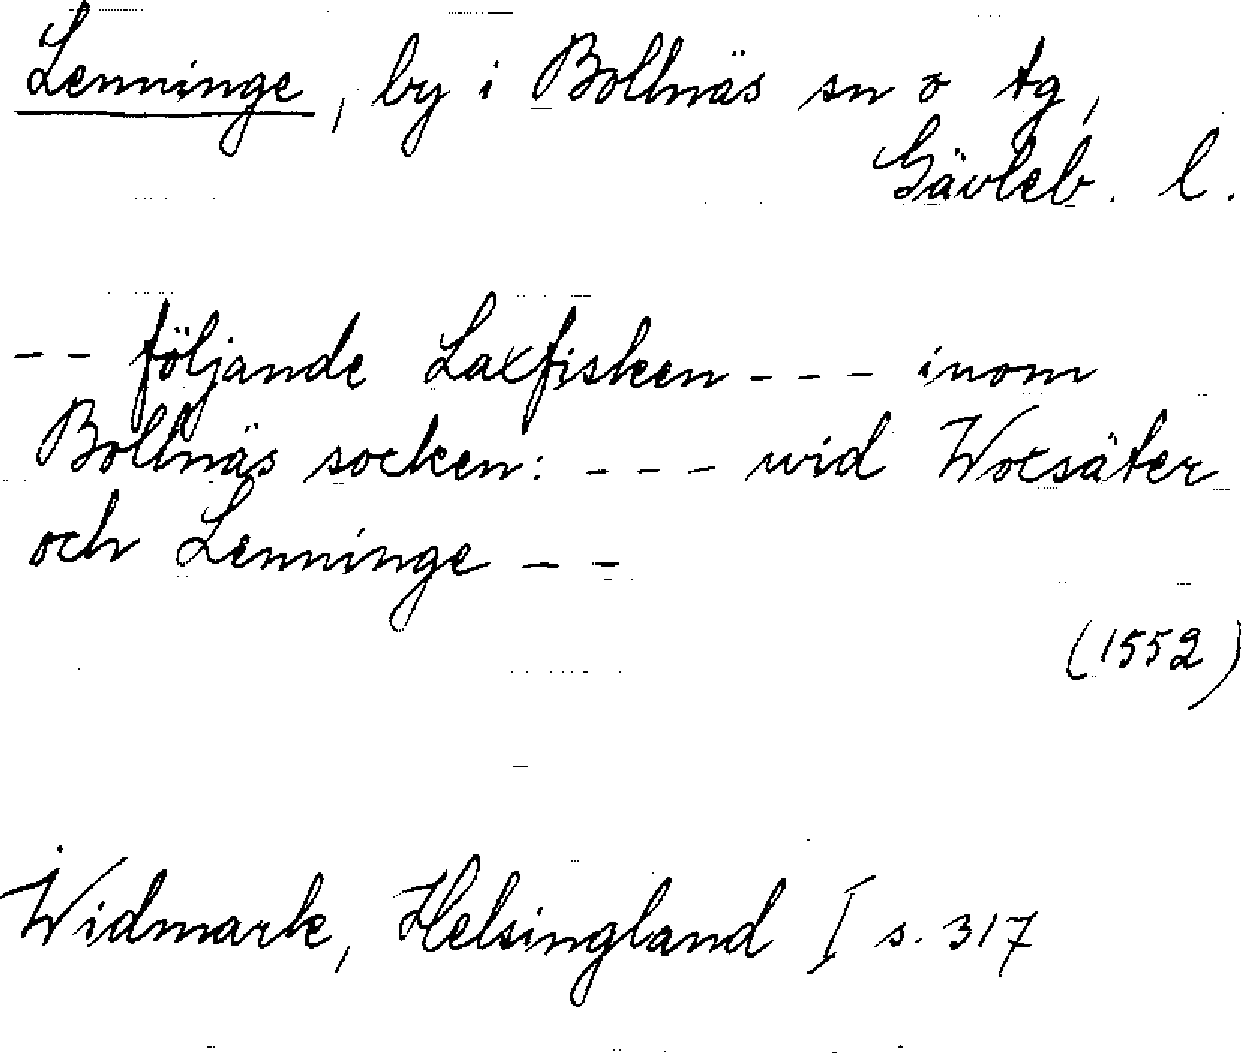 Lenninge, by i Bollnäs sn o tg,
Gävleb. l.
-- följande Laxfisken --- inom
Bollnäs socken: --- wid Woxsäter
och Lenninge --
(1552)
Widmark, Helsingland I s. 317